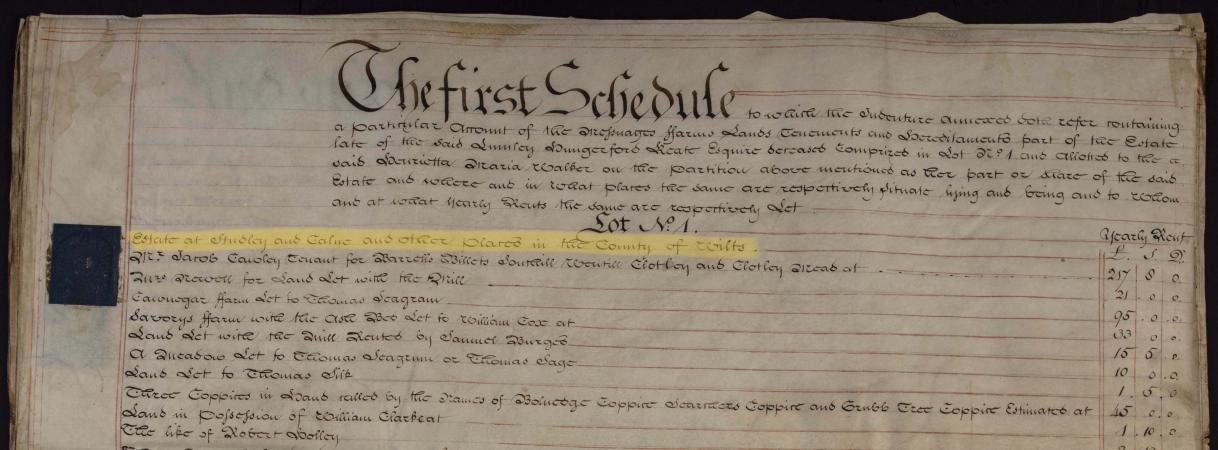 The first Schedule to which the Indenture annexed doth refer containing
a particular Account of the Messuages ffarms Lands Tenements and Hereditaments part of the Estate
late of the said Lumley Hungerford Keate Esquire deceased Comprized in Lot No. 1. and Allotted to the
said Henrietta Maria Walker on the Partition above mentioned as her part or share of the said
Estate and where and in what places the same are respectively situate lying and being and to whom
and at what yearly Rents the same are respectively Let
Lot No. 1.
Yearly Rent
Estate at Studley and Calne and other Places in the County of Wilts.
£. S. D.
Mr. Jacob Tenant for Barretts Billets Southill Clotley and Clotley Mead at 217 8 0.
Mrs. Newell for Land Let with the Mill 21 0 0
ffarm Let to Thomas Seagrum 95 . 0 . 0.
Savorys ffarm with the Ash Bed Let to William Coxe at 33 0 0.
Land Let with the Mill Rented by Samuel Burges 15 5 0.
A Meadow Let to Thomas Seagrum or Thomas Page 10 . 0 . 0.
Land Let to Thomas 1 . 5 . 0.
Three Coppices in Hand called by the Names of Coppice Searchers Coppice and Grubb Tree Coppice Estimated at 45 . 0 . 0.
Land in Possession of William Clarke at 1 . 10 . 0.
The like of Robert Holley